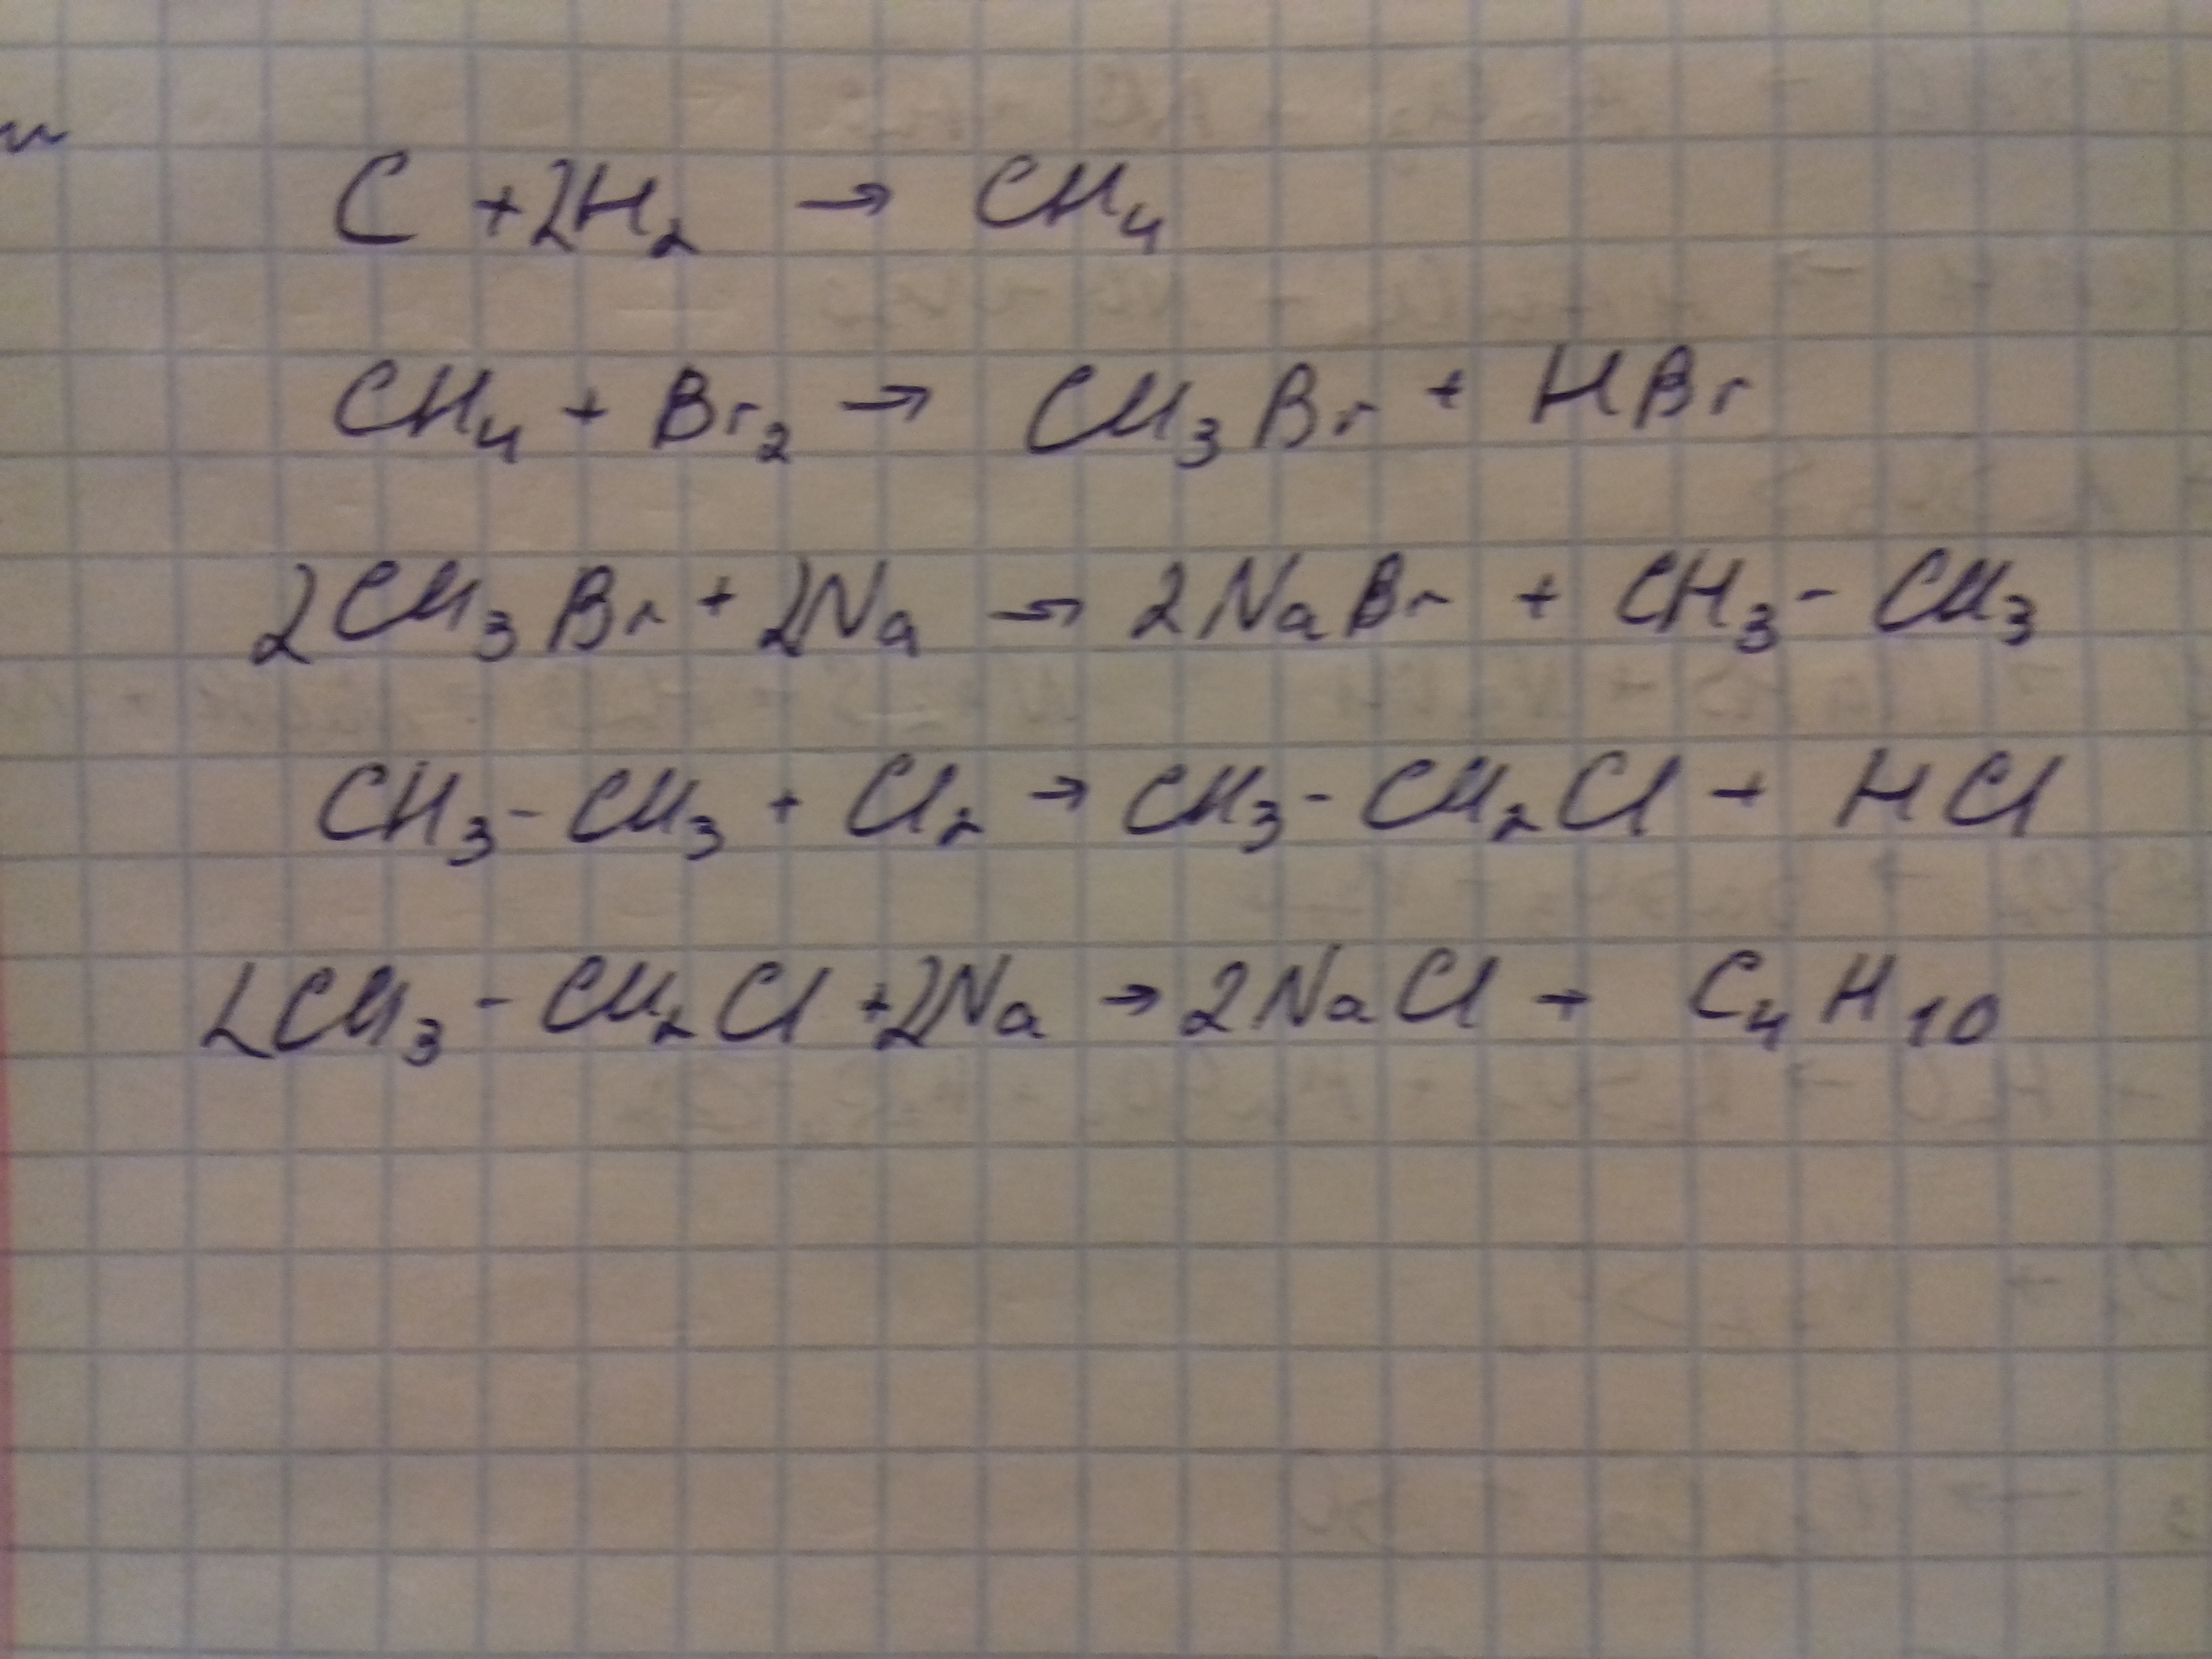 C + 2H₂ → CH₄
CH₄ + Br₂ → CH₃Br + HBr
2CH₃Br + 2Na → 2NaBr + CH₃ - CH₃
CH₃ - CH₃ + Cl₂ → CH₃ - CH₂Cl + HCl
2CH₃ - CH₂Cl + 2Na → 2NaCl + C₄H₁₀